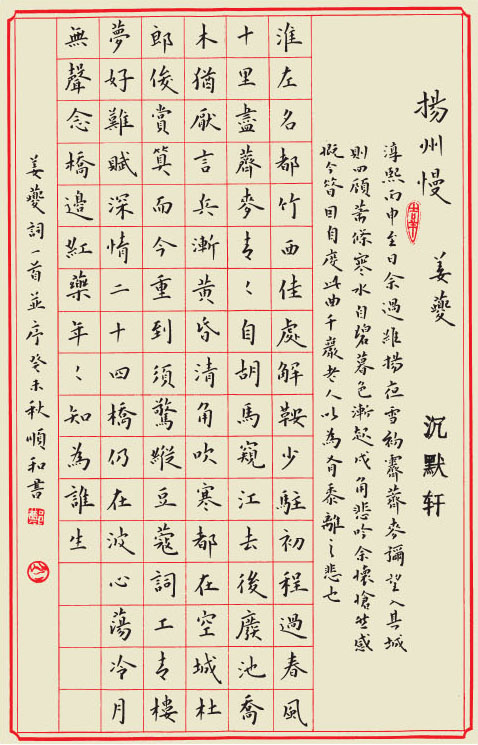 揚州慢 姜夔 沉默轩
淳熙丙申至日余過維揚夜雪初霽薺麥彌望入其城
則四顧蕭條寒水自碧暮色漸起戍角悲吟余懷愴然感
慨今昔因自度此曲千巖老人以為有黍離之悲也
淮左名都竹西佳處解鞍少駐初程過春風
十里盡薺麥青〻自胡馬窺江去後廢池喬
木猶厭言兵漸黄昏清角吹寒都在空城杜
郎俊賞算而今重到須驚縱豆蔻詞工青樓
夢好難賦深情二十四橋仍在波心蕩冷月
無聲念橋邊紅藥年〻知為誰生
姜夔詞一首並序癸未秋順和書